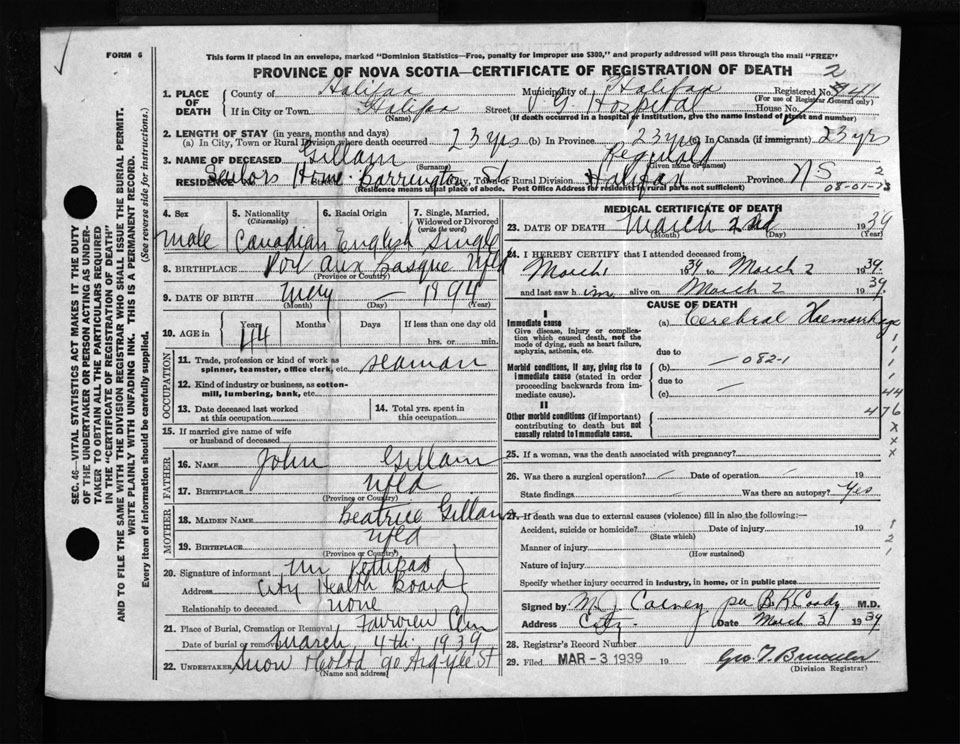 FORM 6
This form if placed in an envelope, marked "Dominion Statistics—Free, penalty for improper use $300," and properly addressed will pass through the mail "FREE"
PROVINCE OF NOVA SCOTIA—CERTIFICATE OF REGISTRATION OF DEATH
1. PLACE OF DEATH
County of Halifax Municipality of Halifax Registered No. 941
(For use of Registrar General only)
If in City or Town Halifax (Name) Street V. G. Hospital House No.
(If death occurred in a hospital or institution, give the name instead of street and number)
2. LENGTH OF STAY (in years, months and days)
(a) In City, Town or Rural Division where death occurred 23 yrs (b) In Province 23 yrs (c) In Canada (if immigrant) 23 yrs
3. NAME OF DECEASED Gillam (Surname) Reginald (Given name or names)
RESIDENCE Sailors Home Barrington St City, Town or Rural Division Halifax Province NS 2
(Residence means usual place of abode. Post Office Address for residents in rural parts not sufficient)
4. Sex Male
5. Nationality (Citizenship) Canadian
6. Racial Origin English
7. Single, Married, Widowed or Divorced (write the word) Single
8. BIRTHPLACE Port aux Basque Nfld
(Province or Country)
9. DATE OF BIRTH May (Month) — (Day) 1894 (Year)
10. AGE in Years 44 Months Days If less than one day old hrs. or min.
OCCUPATION
11. Trade, profession or kind of work as spinner, teamster, office clerk, etc. seaman
12. Kind of industry or business, as cotton-mill, lumbering, bank, etc.
13. Date deceased last worked at this occupation
14. Total yrs. spent in this occupation
15. If married give name of wife or husband of deceased
FATHER
16. NAME John Gillam
17. BIRTHPLACE Nfld
(Province or Country)
MOTHER
18. MAIDEN NAME Beatrice Gillam
19. BIRTHPLACE Nfld
(Province or Country)
20. Signature of informant Wm Pettipas
Address City Health Board
Relationship to deceased none
21. Place of Burial, Cremation or Removal Fairview Cem
Date of burial or removal March 4th 1939
22. UNDERTAKER Snow & Co Ltd 90 Argyle St
(Name and address)
MEDICAL CERTIFICATE OF DEATH
23. DATE OF DEATH March (Month) 2nd (Day) 1939 (Year)
24. I HEREBY CERTIFY that I attended deceased from
March 1 1939 to March 2 1939
and last saw him alive on March 2 1939
CAUSE OF DEATH
I
Immediate cause
Give disease, injury or complication which caused death, not the mode of dying, such as heart failure, asphyxia, asthenia, etc.
(a) Cerebral Haemorrhage
due to
Morbid conditions, if any, giving rise to immediate cause (stated in order proceeding backwards from immediate cause).
(b) — 082-1
due to
(c) —
44
476
II
Other morbid conditions (if important) contributing to death but not causally related to immediate cause.
25. If a woman, was the death associated with pregnancy?
26. Was there a surgical operation? — Date of operation — 19
State findings — Was there an autopsy? Yes
27. If death was due to external causes (violence) fill in also the following:—
Accident, suicide or homicide? Date of injury 19
(State which)
Manner of injury
(How sustained)
Nature of injury
Specify whether injury occurred in industry, in home, or in public place
Signed by per B. K. Coady M.D.
Address City Date March 3 1939
28. Registrar's Record Number
29. Filed MAR - 3 1939 19
(Division Registrar)
SEC. 46—VITAL STATISTICS ACT MAKES IT THE DUTY
OF THE UNDERTAKER OR PERSON ACTING AS UNDER-
TAKER TO OBTAIN ALL THE PARTICULARS REQUIRED
IN THE "CERTIFICATE OF REGISTRATION OF DEATH"
AND TO FILE THE SAME WITH THE DIVISION REGISTRAR WHO SHALL ISSUE THE BURIAL PERMIT.
WRITE PLAINLY WITH UNFADING INK. THIS IS A PERMANENT RECORD.
Every item of information should be carefully supplied. (See reverse side for instructions.)